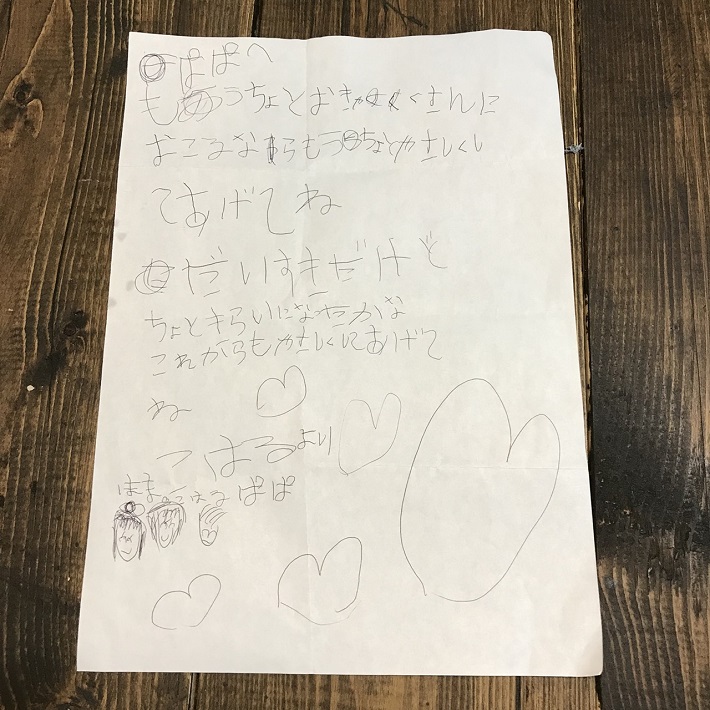 ぱぱへ
もうちょとおきゃくさんに
おこるならもうちょとやさしくし
てあげてね
だいすきだけど
ちょときらいになたかな
これからもやさしくしてあげて
ね
こはるより
まま こはる ぱぱ